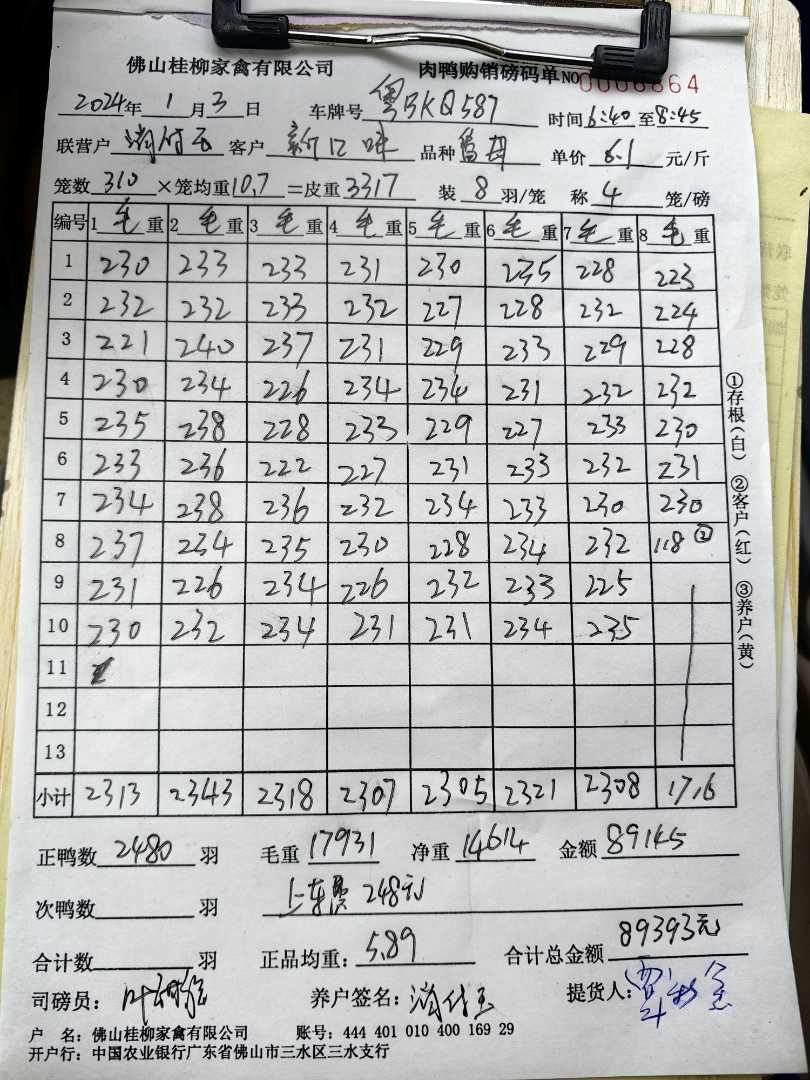 佛山桂柳家禽有限公司 肉鸭购销磅码单 NO 0006864
2024年 1月3日 车牌号 粤BKQ587 时间 6:40 至 8:45
联营户 客户 新口味 品种 单价 6.1 元/斤
笼数 310 ×笼均重 10.7 =皮重 3317 装 8 羽/笼 称 4 笼/磅
编号 1 毛 重 2 毛 重 3 毛 重 4 毛 重 5 毛 重 6 毛 重 7 毛 重 8 毛 重
1 230 233 233 231 230 235 228 223
2 232 232 233 232 227 228 232 224
3 221 240 237 231 229 233 229 228
4 230 234 226 234 234 231 232 232
5 235 238 228 233 229 227 233 230
6 233 236 222 227 231 233 232 231
7 234 238 236 232 234 233 230 230
8 237 234 235 230 228 234 232 118 ②
9 231 226 234 226 232 233 225
10 230 232 234 231 231 234 235
11
12
13
小计 2313 2343 2318 2307 2305 2321 2308 1716
正鸭数 2480 羽 毛重 17931 净重 14614 金额 89145
次鸭数 羽 上车费 248元
合计数 羽 正品均重: 5.89 合计总金额 89393元
司磅员: 养户签名: 提货人:
户 名: 佛山桂柳家禽有限公司 账号: 444 401 010 400 169 29
开户行: 中国农业银行广东省佛山市三水区三水支行
①存根(白) ②客户(红) ③养户(黄)